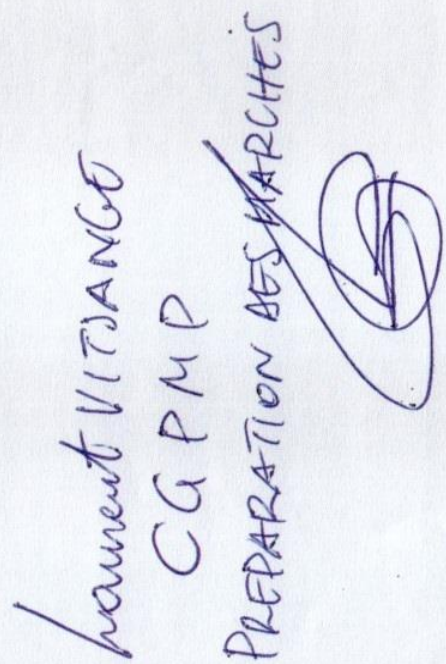 Laurent VITJANGE
CGPMP
PREPARATION DES MARCHES